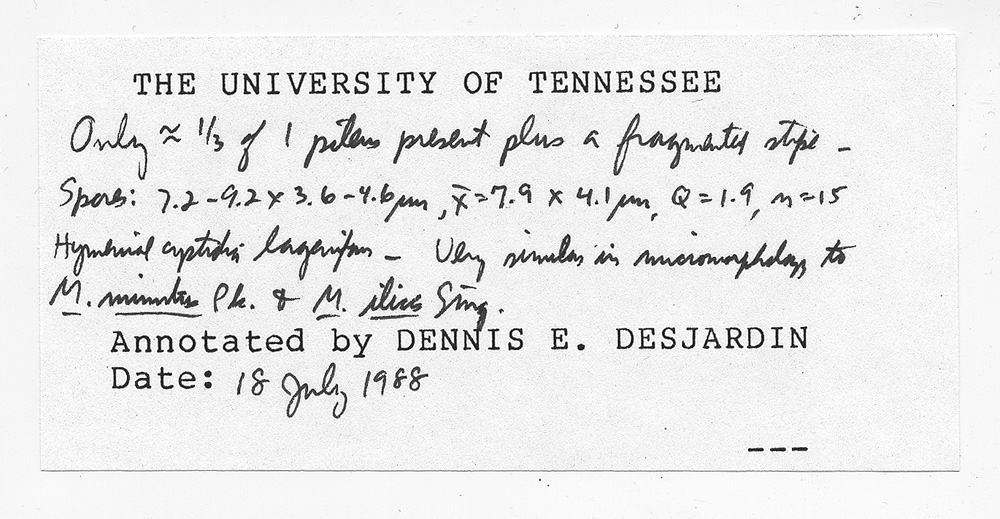 THE UNIVERSITY OF TENNESSEE
Only ≈ 1/3 of 1 pileus present plus a fragmented stipe –
Spores: 7.2–9.2 x 3.6–4.6 µm, x̄=7.9 x 4.1 µm, Q=1.9, n=15
Hymenial cystidia lageniform – Very similar in micromorphology to
M. minutus Pk. & M. ilicis Sing.
Annotated by DENNIS E. DESJARDIN
Date: 18 July 1988
---